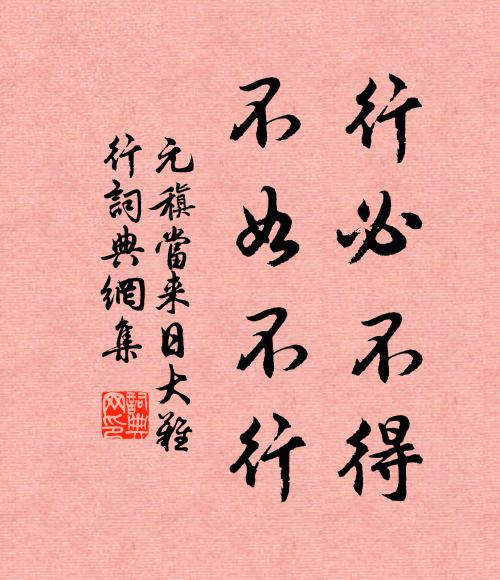 行必不得
不如不行
元稹當来日大難
行詞典網集
詞典
网印